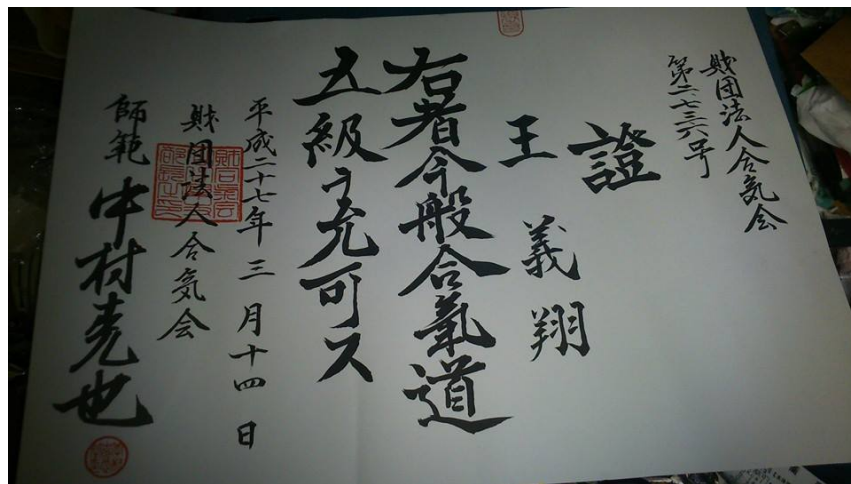 財団法人合気会
第二、七三六号
證
王義翔
右者今般合氣道
五級ヲ允可ス
平成二十七年三月十四日
財団法人合気会
師範 中村克也